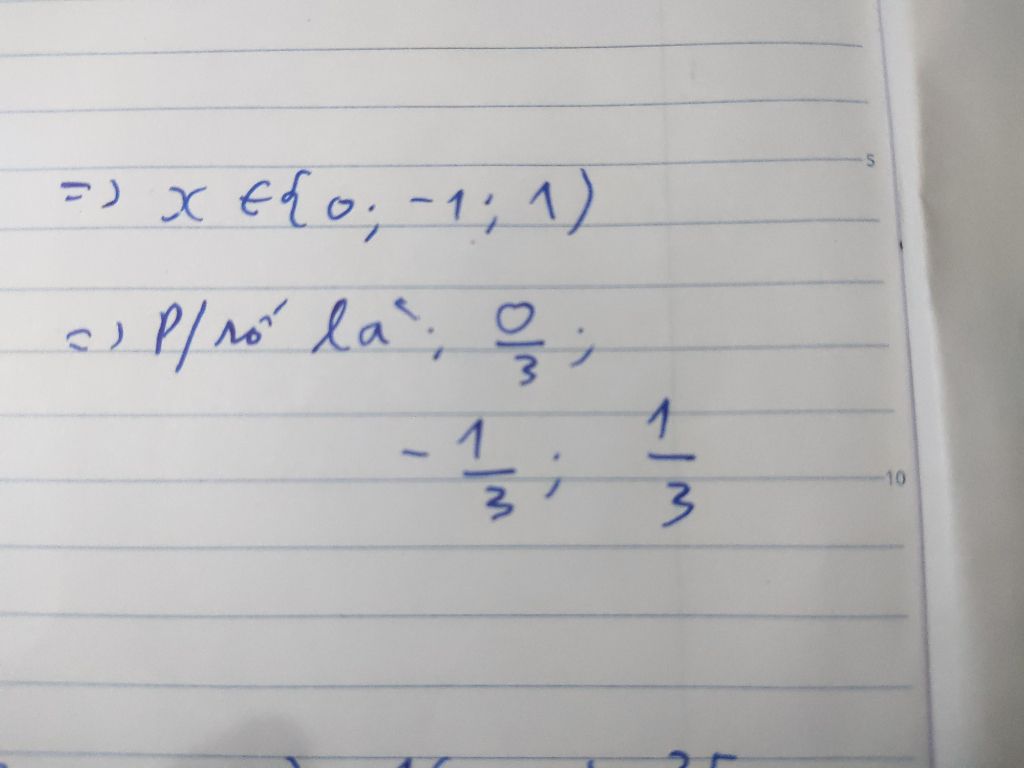 => x ∈ { 0; -1; 1 )
=> P/số là: 0/3;
-1/3; 1/3
5
10